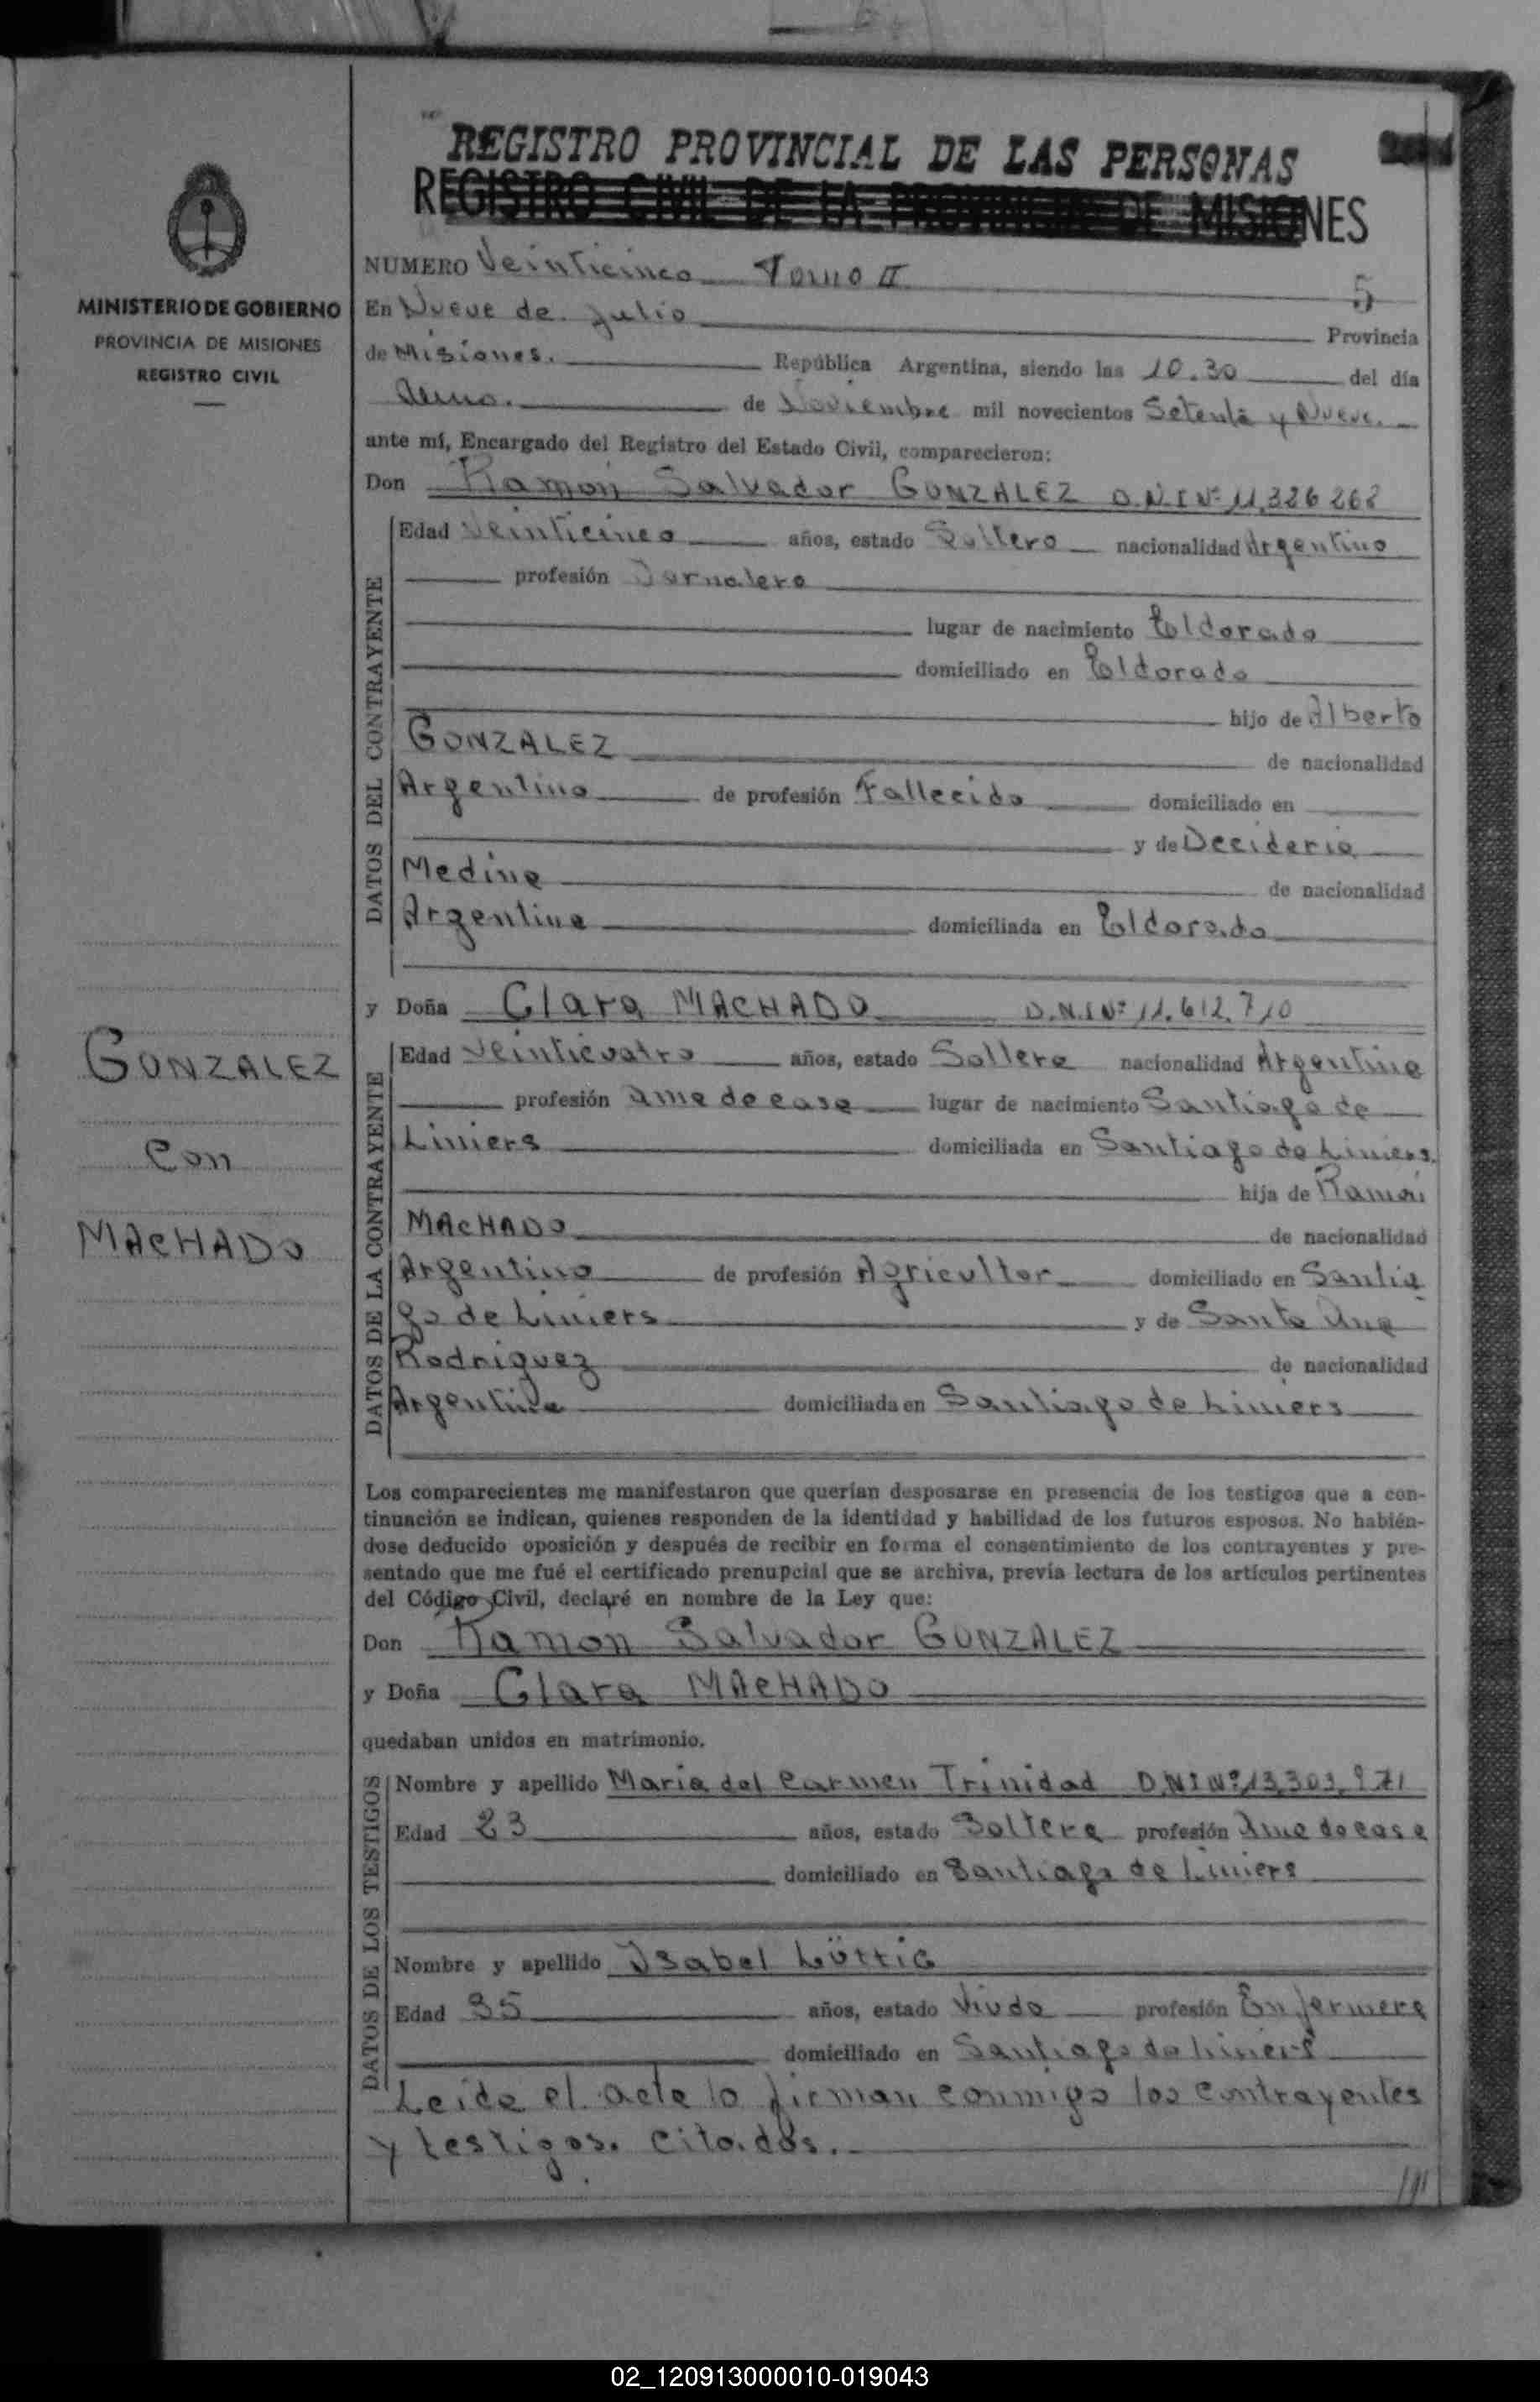 REGISTRO PROVINCIAL DE LAS PERSONAS
REGISTRO CIVIL DE LA PROVINCIA DE MISIONES
MINISTERIO DE GOBIERNO
PROVINCIA DE MISIONES
REGISTRO CIVIL
GONZALEZ
con
MACHADO
NUMERO Veinticinco Tomo II
5
En Nueve de Julio Provincia
de Misiones. República Argentina, siendo las 10.30 del día
de Noviembre mil novecientos Setenta y Nueve.
ante mí, Encargado del Registro del Estado Civil, comparecieron:
Don Ramón Salvador GONZALEZ D.N.I Nº 11.326 268
DATOS DEL CONTRAYENTE
Edad Veinticinco años, estado Soltero nacionalidad Argentino
profesión Jornalero
lugar de nacimiento Eldorado
domiciliado en Eldorado
hijo de Alberto
GONZALEZ de nacionalidad
Argentino de profesión Fallecido domiciliado en
y de Decideria
Medina de nacionalidad
Argentina domiciliada en Eldorado
y Doña Clara MACHADO D.N.I Nº 11.612.710
DATOS DE LA CONTRAYENTE
Edad Veinticuatro años, estado Soltera nacionalidad Argentina
profesión Ama de casa lugar de nacimiento Santiago de
Liniers domiciliada en Santiago de Liniers.
hija de Ramón
MACHADO de nacionalidad
Argentino de profesión Agricultor domiciliado en Santia
go de Liniers y de Santa Ana
Rodriguez de nacionalidad
Argentina domiciliada en Santiago de Liniers
Los comparecientes me manifestaron que querían desposarse en presencia de los testigos que a con-
tinuación se indican, quienes responden de la identidad y habilidad de los futuros esposos. No habién-
dose deducido oposición y después de recibir en forma el consentimiento de los contrayentes y pre-
sentado que me fué el certificado prenupcial que se archiva, previa lectura de los artículos pertinentes
del Código Civil, declaré en nombre de la Ley que:
Don Ramon Salvador GONZALEZ
y Doña Clara MACHADO
quedaban unidos en matrimonio.
DATOS DE LOS TESTIGOS
Nombre y apellido Maria del Carmen Trinidad D.N.I Nº 13.303.971
Edad 23 años, estado Soltera profesión Ama de casa
domiciliado en Santiago de Liniers
Nombre y apellido Isabel Lüttig
Edad 35 años, estado Viuda profesión Enfermera
domiciliado en Santiago de Liniers
Leida el acta la firman conmigo los contrayentes
y testigos. citados.
02_120913000010-019043